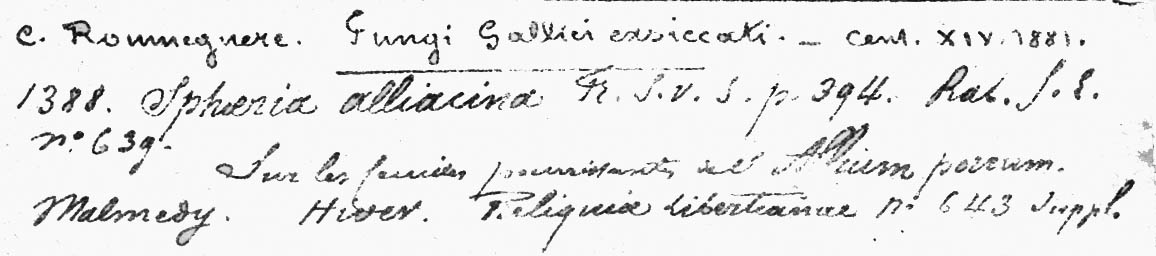 C. Roumeguere. Fungi Gallici exsiccati. – Cent. XIV. 1881.
1388. Sphæria alliacina Fr. S. v. S. p. 394. Rab. f. E.
nº 639.
Sur les feuilles pourrissantes de l'Allium porrum.
Malmedy. Hiver. Reliquiæ Libertianae nº 643 Suppl.